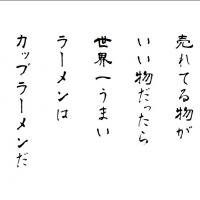 売れてる物が
いい物だったら
世界一うまい
ラーメンは
カップラーメンだ